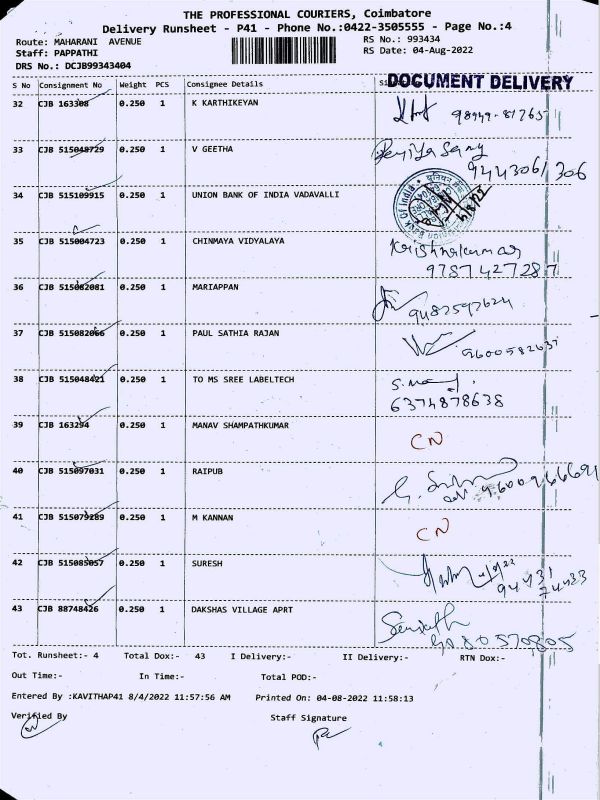 THE PROFESSIONAL COURIERS, Coimbatore
Delivery Runsheet - P41 - Phone No.:0422-3505555 - Page No.:4
Route: MAHARANI AVENUE
RS No.: 993434
Staff: PAPPATHI
RS Date: 04-Aug-2022
DRS No.: DCJB99343404
DOCUMENT DELIVERY
S No Consignment No Weight PCS Consignee Details
32 CJB 163308 0.250 1 K KARTHIKEYAN
33 CJB 515048729 0.250 1 V GEETHA
9443061306
34 CJB 515109915 0.250 1 UNION BANK OF INDIA VADAVALLI
35 CJB 515004723 0.250 1 CHINMAYA VIDYALAYA Krishnakumar
9787427287
36 CJB 515062081 0.250 1 MARIAPPAN
37 CJB 515082066 0.250 1 PAUL SATHIA RAJAN 9600582637
38 CJB 515048421 0.250 1 TO MS SREE LABELTECH
6374878638
39 CJB 163294 0.250 1 MANAV SHAMPATHKUMAR CN
40 CJB 515097031 0.250 1 RAIPUB
41 CJB 515079289 0.250 1 M KANNAN CN
42 CJB 515085057 0.250 1 SURESH
94431
74433
43 CJB 88748426 0.250 1 DAKSHAS VILLAGE APRT
Tot. Runsheet:- 4 Total Dox:- 43 I Delivery:- II Delivery:- RTN Dox:-
Out Time:- In Time:- Total POD:-
Entered By :KAVITHAP41 8/4/2022 11:57:56 AM Printed On: 04-08-2022 11:58:13
Verified By Staff Signature